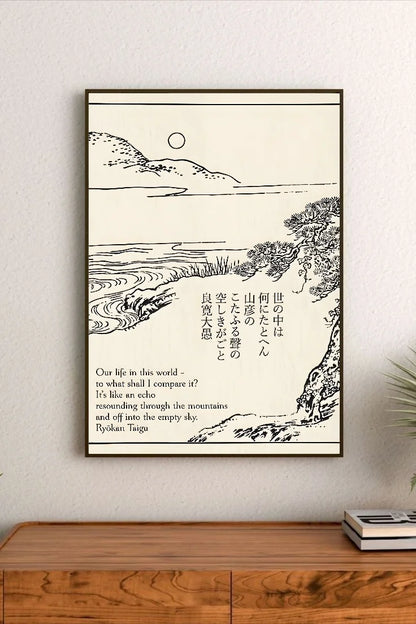 世の中は
何にたとへん
山彦の
こたふる聲の
空しきがごと
良寛大愚
Our life in this world -
to what shall I compare it?
It's like an echo
resounding through the mountains
and off into the empty sky.
Ryōkan Taigu